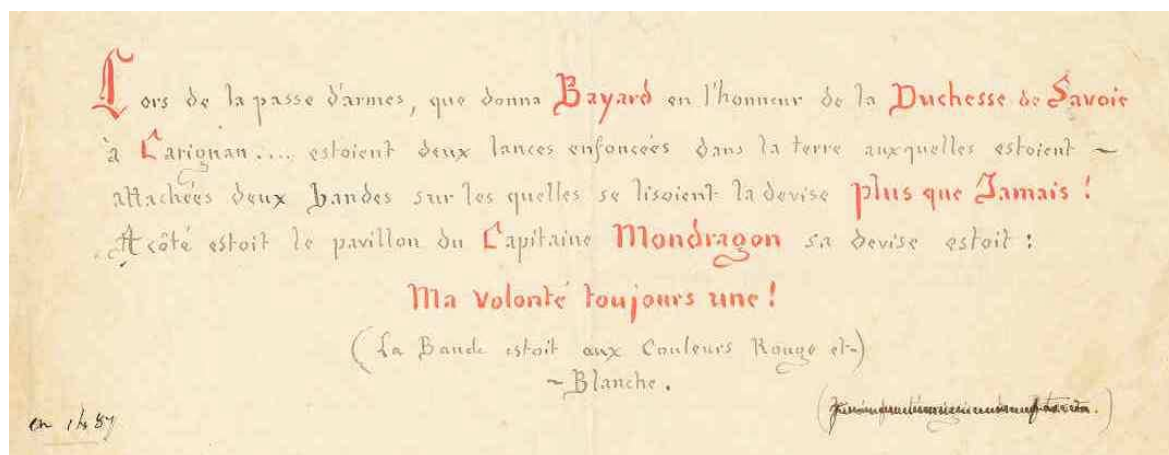 Lors de la passe d'armes, que donna Bayard en l'honneur de la Duchesse de Savoie
à Carignan.... estoient deux lances enfoncées dans la terre auxquelles estoient ~
attachées deux bandes sur les quelles se lisoient la devise plus que Jamais !
A côté estoit le pavillon du Capitaine Mondragon sa devise estoit :
Ma volonté toujours une !
(La Bande estoit aux Couleurs Rouge et-)
~ Blanche.
en 1487